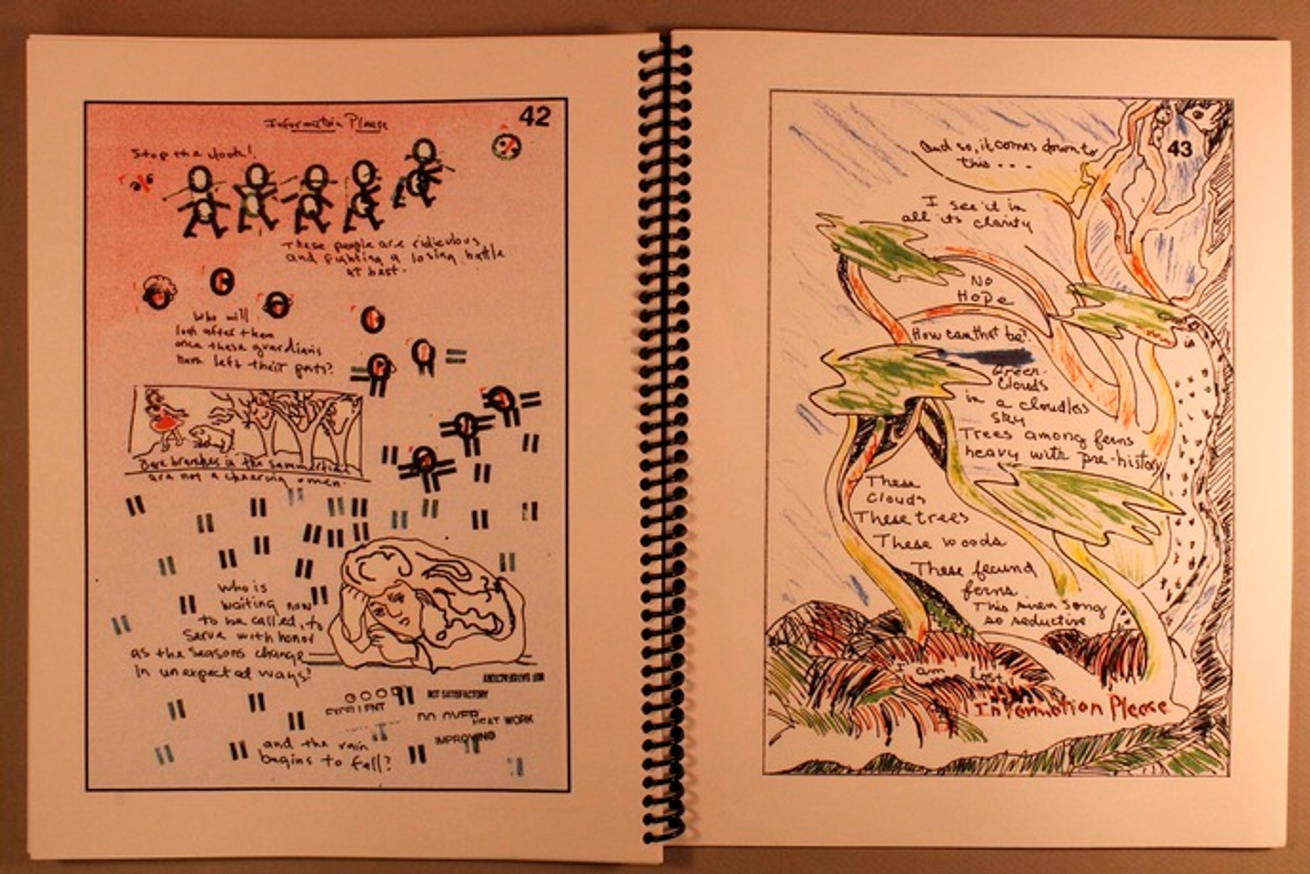 42
Information Please
Stop the clock!
These people are ridiculous
and fighting a losing battle
at best.
Who will
look after them
once these guardians
have left their posts?
Bare branches in the summertime
are not a cheering omen.
Who is
waiting now
to be called, to
serve with honor
as the seasons change
in unexpected ways?
NOT SATISFACTORY
GOOD
NOT SATISFACTORY
EXCELLENT
DO OVER
NEAT WORK
IMPROVING
and the rain
begins to fall?
43
And so, it comes down to
this . . .
I see it in
all its clarity
No
Hope
How can that be?
Green
Clouds
in a cloudless
sky
Trees among ferns
heavy with pre-history
These
Clouds
These trees
These woods
These fecund
ferns.
This siren song
so seductive
I am lost.
Information Please